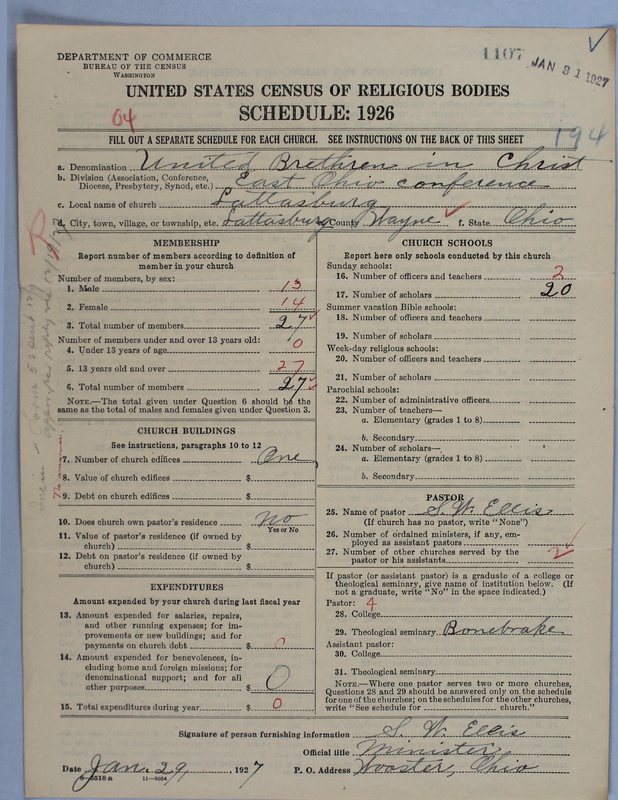 DEPARTMENT OF COMMERCE
BUREAU OF THE CENSUS
WASHINGTON
1107
JAN 31 1927
UNITED STATES CENSUS OF RELIGIOUS BODIES
SCHEDULE: 1926
04
194
FILL OUT A SEPARATE SCHEDULE FOR EACH CHURCH. SEE INSTRUCTIONS ON THE BACK OF THIS SHEET
a. Denomination United Brethren in Christ
b. Division (Association, Conference, Diocese, Presbytery, Synod, etc.) East Ohio conference
c. Local name of church Lattasburg
d. City, town, village, or township, etc. Lattasburg County Wayne f. State Ohio
MEMBERSHIP
Report number of members according to definition of member in your church
Number of members, by sex:
1. Male 13
2. Female 14
3. Total number of members 27
Number of members under and over 13 years old:
4. Under 13 years of age 0
5. 13 years old and over 27
6. Total number of members 27
NOTE.—The total given under Question 6 should be the same as the total of males and females given under Question 3.
CHURCH BUILDINGS
See instructions, paragraphs 10 to 12
7. Number of church edifices One
8. Value of church edifices $
9. Debt on church edifices $
10. Does church own pastor's residence No
Yes or No
11. Value of pastor's residence (if owned by church) $
12. Debt on pastor's residence (if owned by church) $
EXPENDITURES
Amount expended by your church during last fiscal year
13. Amount expended for salaries, repairs, and other running expenses; for improvements or new buildings; and for payments on church debt $ 0
14. Amount expended for benevolences, including home and foreign missions; for denominational support; and for all other purposes $ 0
15. Total expenditures during year $ 0
CHURCH SCHOOLS
Report here only schools conducted by this church
Sunday schools:
16. Number of officers and teachers 2
17. Number of scholars 20
Summer vacation Bible schools:
18. Number of officers and teachers
19. Number of scholars
Week-day religious schools:
20. Number of officers and teachers
21. Number of scholars
Parochial schools:
22. Number of administrative officers
23. Number of teachers—
a. Elementary (grades 1 to 8)
b. Secondary
24. Number of scholars—
a. Elementary (grades 1 to 8)
b. Secondary
PASTOR
25. Name of pastor S. W. Ellis
(If church has no pastor, write "None")
26. Number of ordained ministers, if any, employed as assistant pastors
27. Number of other churches served by the pastor or his assistants 2
If pastor (or assistant pastor) is a graduate of a college or theological seminary, give name of institution below. (If not a graduate, write "No" in the space indicated.)
Pastor: 4
28. College
29. Theological seminary Bonebrake
Assistant pastor:
30. College
31. Theological seminary
NOTE.—Where one pastor serves two or more churches, Questions 28 and 29 should be answered only on the schedule for one of the churches; on the schedules for the other churches, write "See schedule for church."
Signature of person furnishing information S. W. Ellis
Official title Minister
Date Jan. 29, 1927 P. O. Address Wooster, Ohio
8-5518a 11-9064